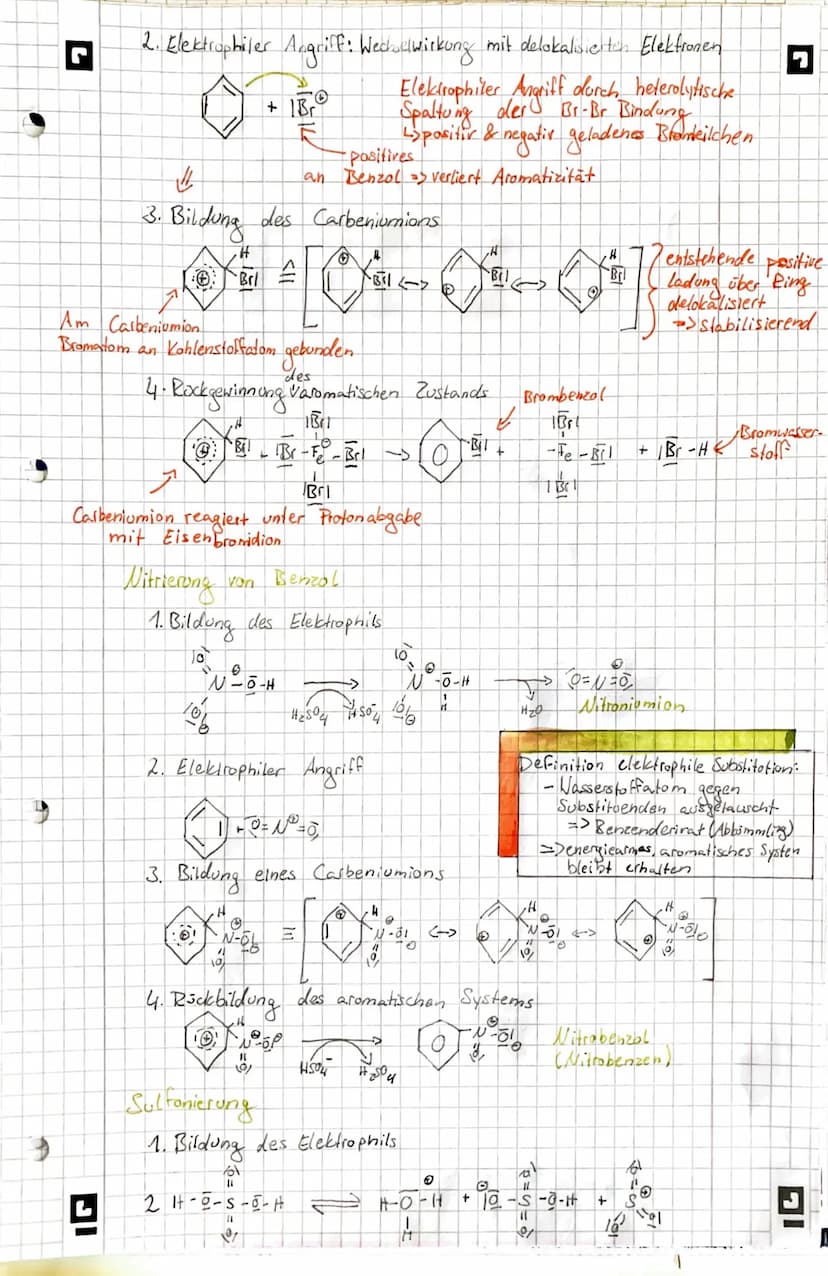 2. Elektrophiler Angriff: Wechselwirkung mit delokalisierten Elektronen
+ |Br⊕
Elektrophiler Angriff durch heterolytische
Spaltung der Br-Br Bindung
↳ positiv & negativ geladenes Bromteilchen
positives
an Benzol => verliert Aromatizität
3. Bildung des Carbeniumions
H Br| ≙ [ H Br| <-> H Br| <-> H Br| ]
entstehende positive
ladung über Ring
delokalisiert
=> stabilisierend
Am Carbeniumion
Bromatom an Kohlenstoffatom gebunden
des
4. Rückgewinnung v aromatischen Zustands
Brombenzol
|Br| |Br|
H Br| - |Br - Fe - Br| -> Br| + - Fe - Br| + |Br - H
|Br| |Br|
Bromwasser-
stoff
Carbeniumion reagiert unter Protonabgabe
mit Eisenbromidion
Nitrierung von Benzol
1. Bildung des Elektrophils
|O |O
N - O - H -> N - O - H -> O = N = O
|O H2SO4 HSO4⁻ |O H H2O
Nitroniumion
2. Elektrophiler Angriff
+ O = N⊕ = O
Definition elektrophile Substitution:
- Wasserstoffatom gegen
Substituenden ausgetauscht
=> Benzenderivat (Abkömmling)
=> energiearmes, aromatisches System
bleibt erhalten
3. Bildung eines Carbeniumions
H N - O| ≡ [ H N - O| <-> H N - O| <-> H N - O| ]
|O| |O| |O| |O|
4. Rückbildung des aromatischen Systems
H N - O| -> N - O|
|O| HSO4⁻ H2SO4 |O|
Nitrobenzol
(Nitrobenzen)
Sulfonierung
1. Bildung des Elektrophils
|O| |O| |O|
2 H - O - S - O - H ⇌ H - O - H + |O - S - O - H + S
|O| H |O| |O O|